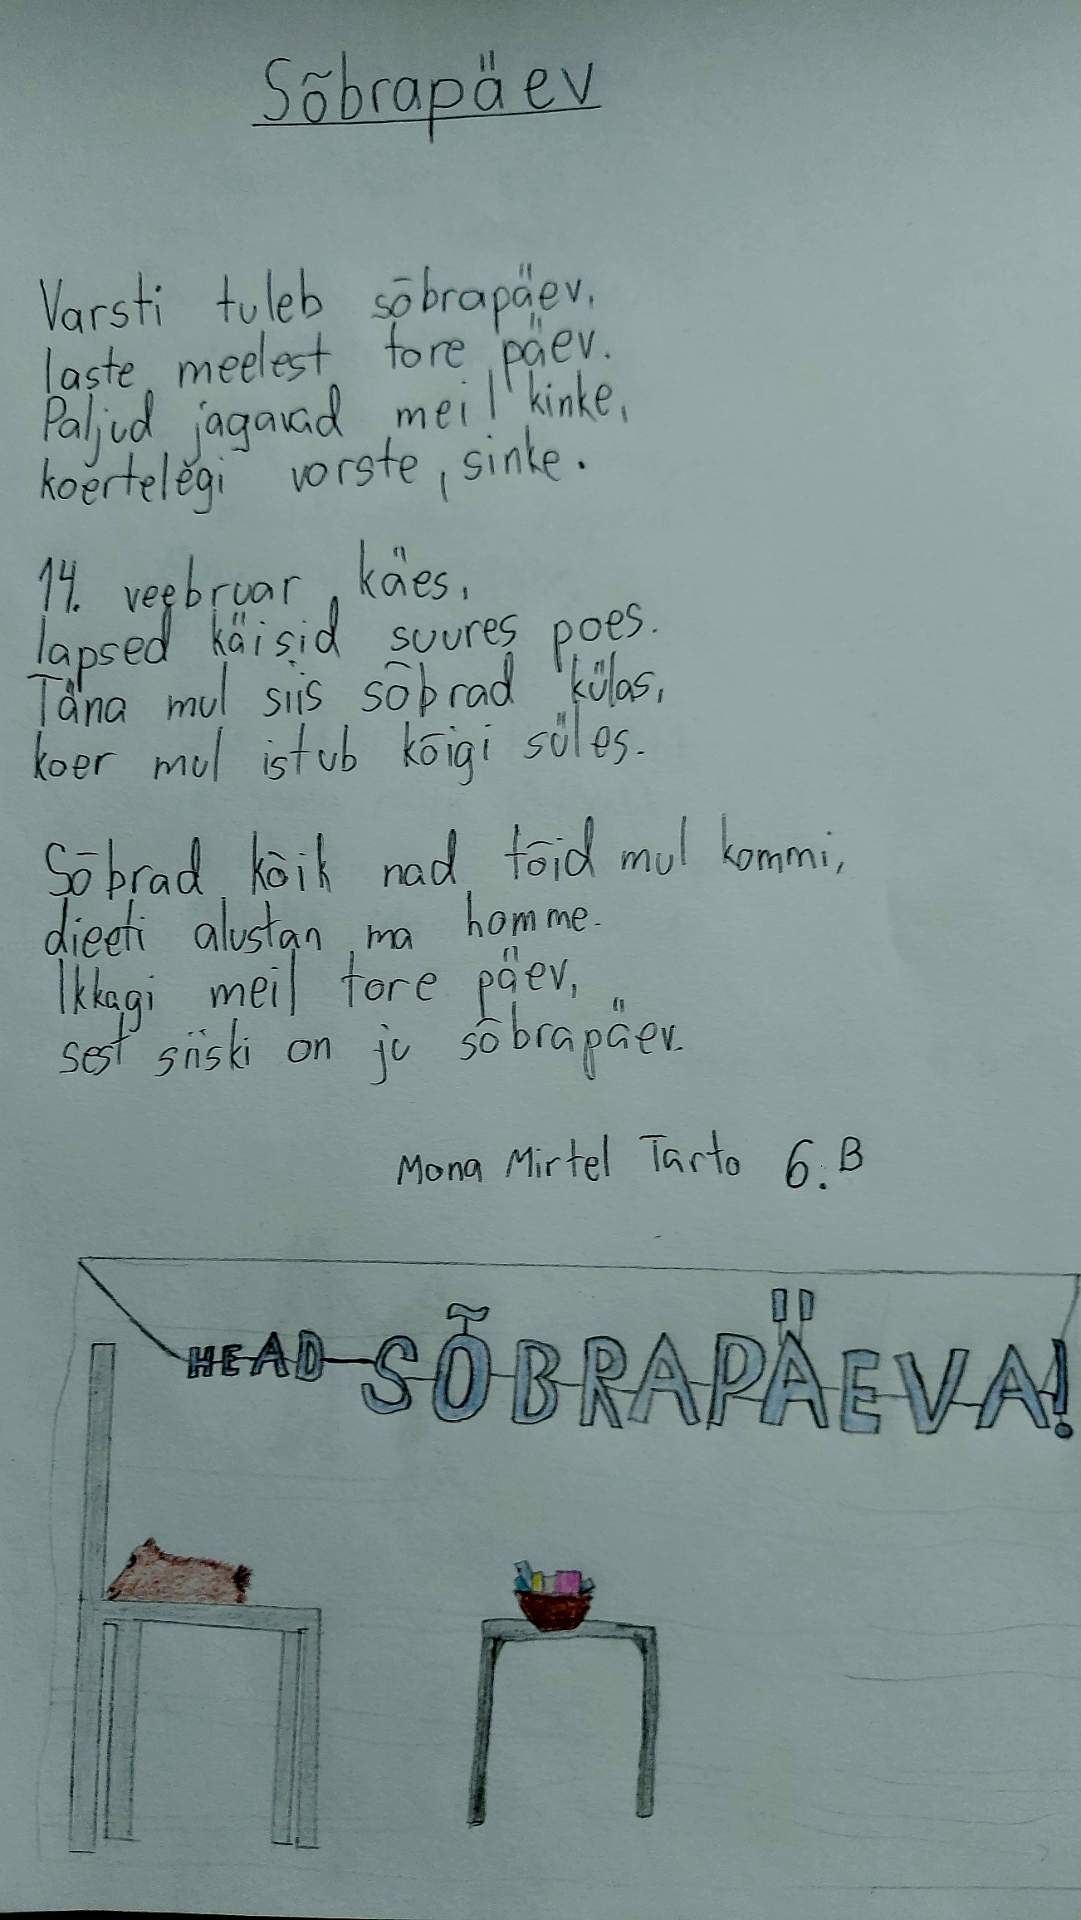 Sõbrapäev
Varsti tuleb sõbrapäev,
laste meelest tore päev.
Paljud jagavad meil kinke,
koertelegi vorste, sinke.
14. veebruar käes,
lapsed käisid suures poes.
Täna mul siis sõbrad külas,
koer mul istub kõigi süles.
Sõbrad kõik nad tõid mul kommi,
dieeti alustan ma homme.
Ikkagi meil tore päev,
sest siiski on ju sõbrapäev.
Mona Mirtel Tarto 6.B
HEAD SÕBRAPÄEVA!